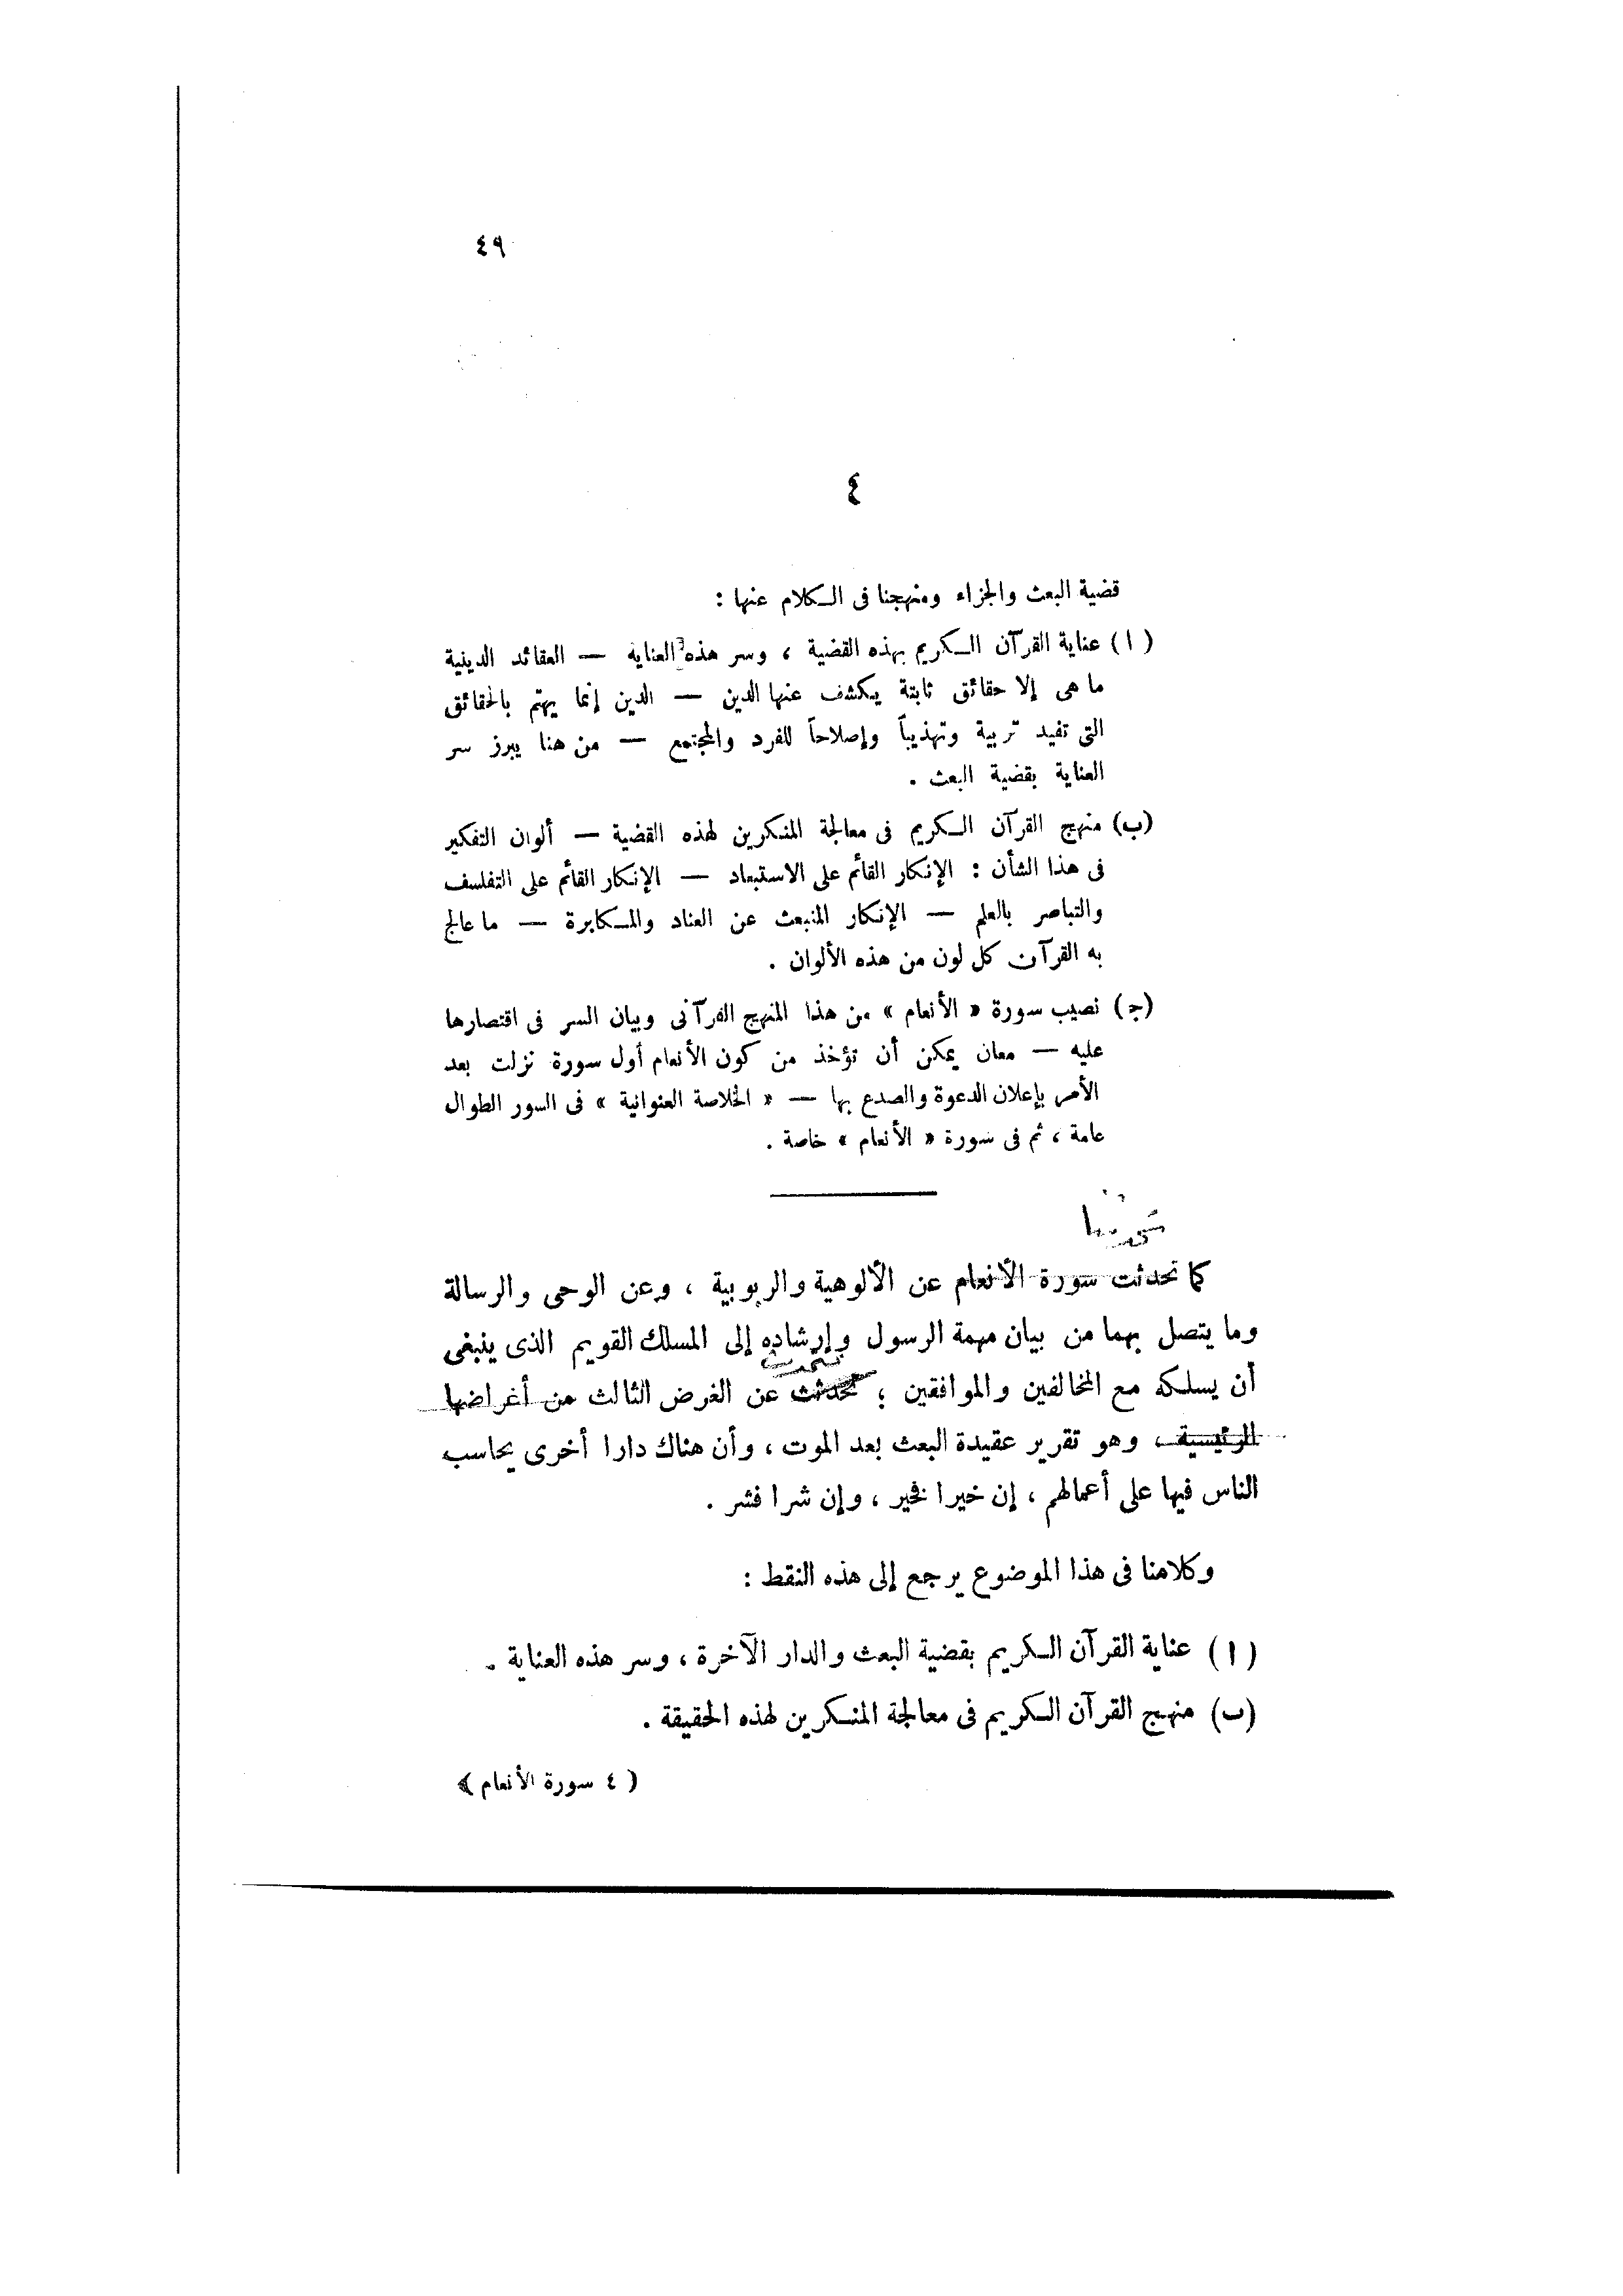 ٤٩
٤
قضية البعث والجزاء ومنهجنا فى الكلام عنها :
( ا ) عناية القرآن الكريم بهذه القضية ، وسر هذه العناية — العقائد الدينية
ما هى إلا حقائق ثابتة يكشف عنها الدين — الدين إنما يهتم بالحقائق
التى تفيد تربية وتهذيباً وإصلاحاً للفرد والمجتمع — من هنا يبرز سر
العناية بقضية البعث .
(ب) منهج القرآن الكريم فى معالجة المنكرين لهذه القضية — ألوان التفكير
فى هذا الشأن : الإنكار القائم على الاستبعاد — الإنكار القائم على التفلسف
والتباصر بالعلم — الإنكار المنبعث عن العناد والمكابرة — ما عالج
به القرآن كل لون من هذه الألوان .
(ج) نصيب سورة « الأنعام » من هذا المنهج القرآنى وبيان السر فى اقتصارها
عليه — معان يمكن أن تؤخذ من كون الأنعام أول سورة نزلت بعد
الأمر بإعلان الدعوة والصدع بها — « الخلاصة العنوانية » فى السور الطوال
عامة ، ثم فى سورة « الأنعام » خاصة .
كما تحدثت سورة الأنعام عن الألوهية والربوبية ، وعن الوحى والرسالة
وما يتصل بهما من بيان مهمة الرسول وإرشاده إلى المسلك القويم الذى ينبغى
أن يسلكه مع المخالفين والموافقين ؛ تحدثت عن الغرض الثالث من أغراضها
الرئيسية ، وهو تقرير عقيدة البعث بعد الموت ، وأن هناك دارا أخرى يحاسب
الناس فيها على أعمالهم ، إن خيرا فخير ، وإن شرا فشر .
وكلامنا فى هذا الموضوع يرجع إلى هذه النقط :
( ا ) عناية القرآن الكريم بقضية البعث والدار الآخرة ، وسر هذه العناية .
(ب) منهج القرآن الكريم فى معالجة المنكرين لهذه الحقيقة .
( ٤ سورة الأنعام )